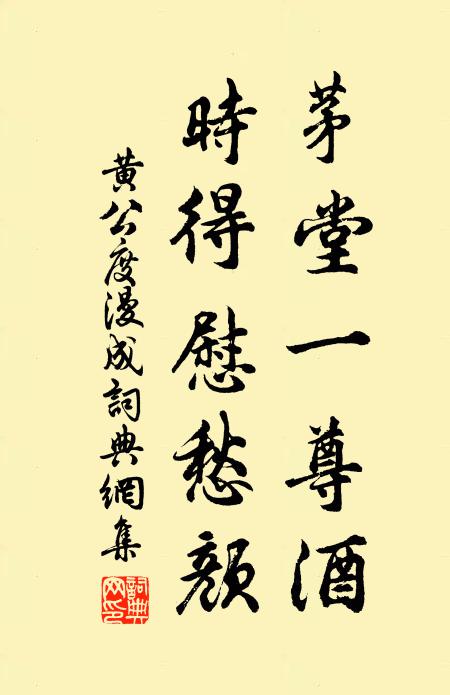 茅堂一尊酒
時得慰愁顏
黃公度漫成詞典網集
詞典網印